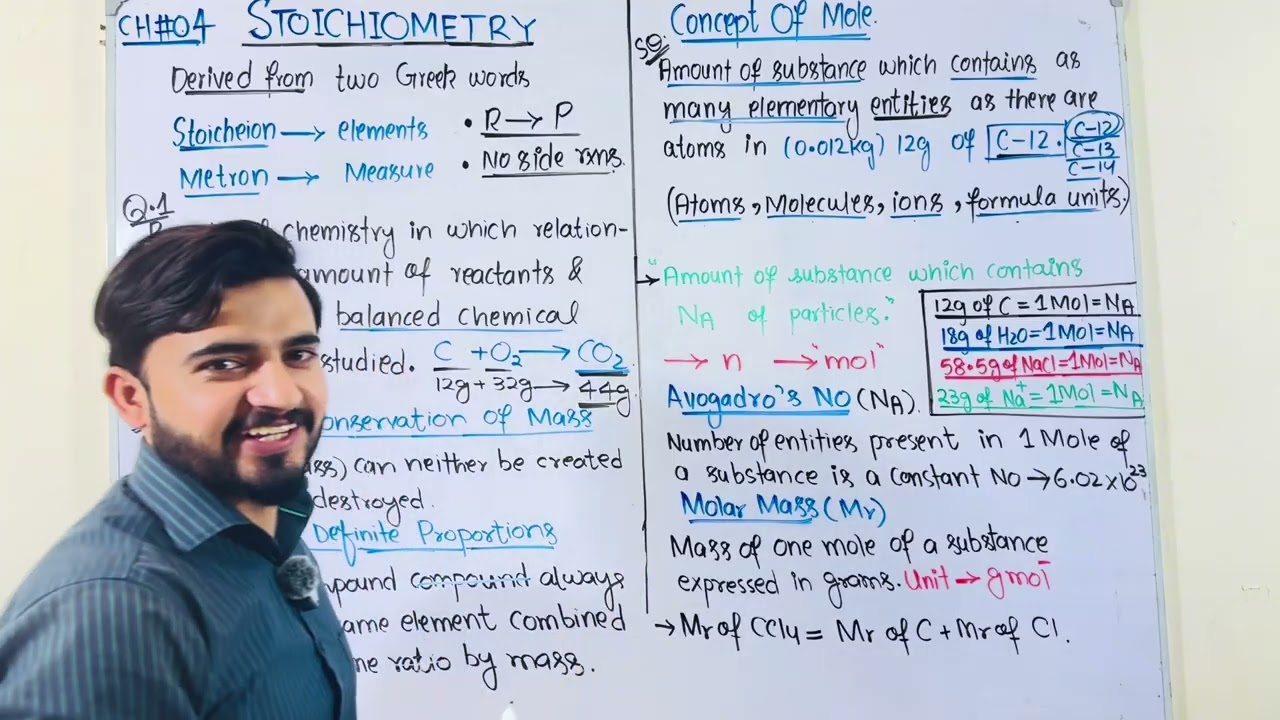 CH#04 STOICHIOMETRY
Derived from two Greek words
Stoicheion → elements
Metron → Measure
• R → P
• No side rxns.
Q.1
chemistry in which relation-
amount of reactants &
balanced chemical
studied. C + O2 → CO2
12g + 32g → 44g
onservation of Mass
ass) can neither be created
destroyed.
Definite Proportions
pound compound always
ame element combined
me ratio by mass.
SQ. Concept Of Mole.
Amount of substance which contains as
many elementary entities as there are
atoms in (0.012kg) 12g of C-12.
C-12
C-13
C-14
(Atoms, Molecules, ions, formula units.)
→ "Amount of substance which contains
NA of particles."
→ n → "mol"
12g of C = 1Mol = NA
18g of H2O = 1Mol = NA
58.5g of NaCl = 1Mol = NA
23g of Na+ = 1Mol = NA
Avogadro's NO (NA).
Number of entities present in 1 Mole of
a substance is a constant No → 6.02 x 10^23
Molar Mass (Mr)
Mass of one mole of a substance
expressed in grams. Unit → gmol-
→ Mr of CCl4 = Mr of C + Mr of Cl.